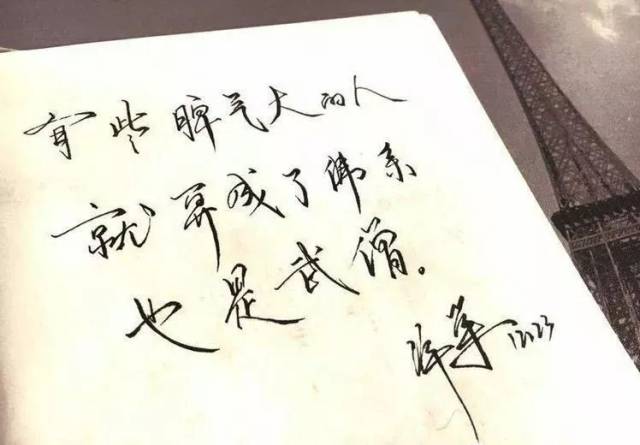 有些脾气大的人
就算成了佛系
也是武僧。